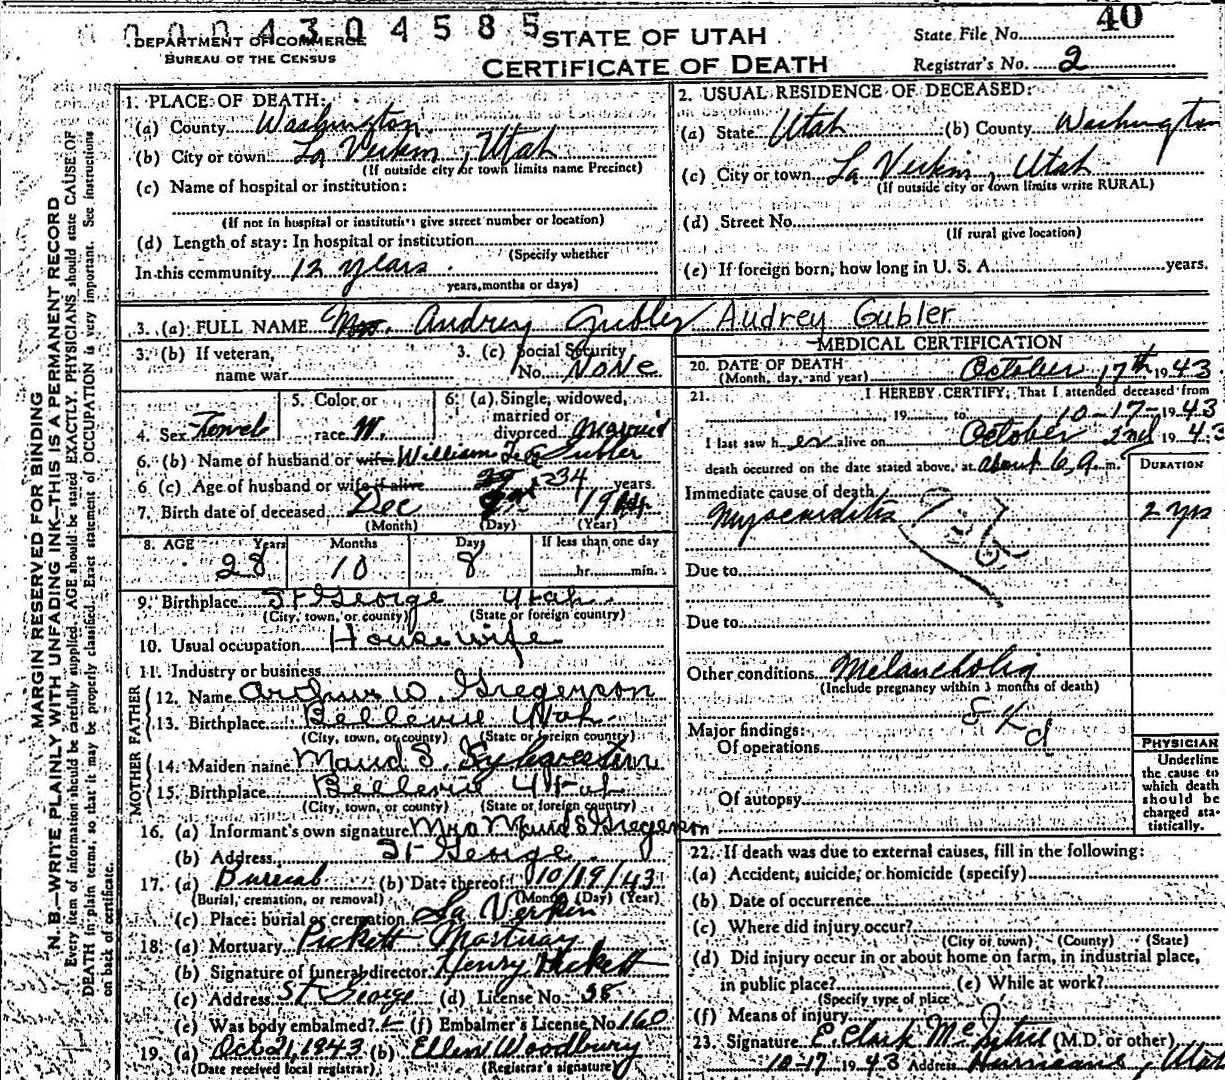 0 0 0 4 3 0 4 5 8 5
40
DEPARTMENT OF COMMERCE
BUREAU OF THE CENSUS
STATE OF UTAH
CERTIFICATE OF DEATH
State File No.
Registrar's No. 2
1. PLACE OF DEATH:
(a) County Washington
(b) City or town La Verkin, Utah
(If outside city or town limits name Precinct)
(c) Name of hospital or institution:
(If not in hospital or institution give street number or location)
(d) Length of stay: In hospital or institution
(Specify whether
In this community 12 years
years, months or days)
2. USUAL RESIDENCE OF DECEASED:
(a) State Utah (b) County Washington
(c) City or town La Verkin, Utah
(If outside city or town limits write RURAL)
(d) Street No.
(If rural give location)
(e) If foreign born, how long in U. S. A. years.
3. (a) FULL NAME Mrs. Audrey Gubler Audrey Gubler
3. (b) If veteran,
name war
3. (c) Social Security
No. None
4. Sex
5. Color or
race W.
6. (a) Single, widowed,
married or
divorced married
6. (b) Name of husband or wife William Gubler
6 (c) Age of husband or wife if alive 34 years.
7. Birth date of deceased Dec 19
(Month) (Day) (Year)
8. AGE Years Months Days If less than one day
28 10 8 hr. min.
9. Birthplace St George Utah
(City, town, or county) (State or foreign country)
10. Usual occupation Housewife
11. Industry or business
FATHER
12. Name Arthur W. Gregerson
13. Birthplace Bellevue Utah
(City, town, or county) (State or foreign country)
MOTHER
14. Maiden name Maud S.
15. Birthplace Bellevue Utah
(City, town, or county) (State or foreign country)
16. (a) Informant's own signature Mrs Maud S Gregerson
(b) Address St George
17. (a) Bureal (b) Date thereof 10/19/43
(Burial, cremation, or removal) (Month) (Day) (Year)
(c) Place: burial or cremation La Verkin
18. (a) Mortuary Pickett Mortuary
(b) Signature of funeral director Henry Pickett
(c) Address St George (d) License No. 38
(e) Was body embalmed? (f) Embalmer's License No. 160
19. (a) Oct 21, 1943 (b) Ellen Woodbury
(Date received local registrar) (Registrar's signature)
MEDICAL CERTIFICATION
20. DATE OF DEATH
(Month, day, and year) October 17th 1943.
21. I HEREBY CERTIFY, That I attended deceased from
19 to 10-17-1943
I last saw her alive on October 2nd 1943
death occurred on the date stated above, at about 6 a.m.
DURATION
Immediate cause of death
Myocarditis 2 yrs
Due to
Due to
Other conditions Melancholia
(Include pregnancy within 3 months of death)
Major findings:
Of operations
Of autopsy
PHYSICIAN
Underline
the cause to
which death
should be
charged sta-
tistically.
22. If death was due to external causes, fill in the following:
(a) Accident, suicide, or homicide (specify)
(b) Date of occurrence
(c) Where did injury occur?
(City or town) (County) (State)
(d) Did injury occur in or about home on farm, in industrial place,
in public place? (e) While at work?
(Specify type of place)
(f) Means of injury
23. Signature E. Clark McIntire (M.D. or other)
10-17 1943 Address Hurricane, Utah
MARGIN RESERVED FOR BINDING
N. B.—WRITE PLAINLY WITH UNFADING INK—THIS IS A PERMANENT RECORD
Every item of information should be carefully supplied. AGE should be stated EXACTLY. PHYSICIANS should state CAUSE OF
DEATH in plain terms, so that it may be properly classified. Exact statement of OCCUPATION is very important. See instructions
on back of certificate.